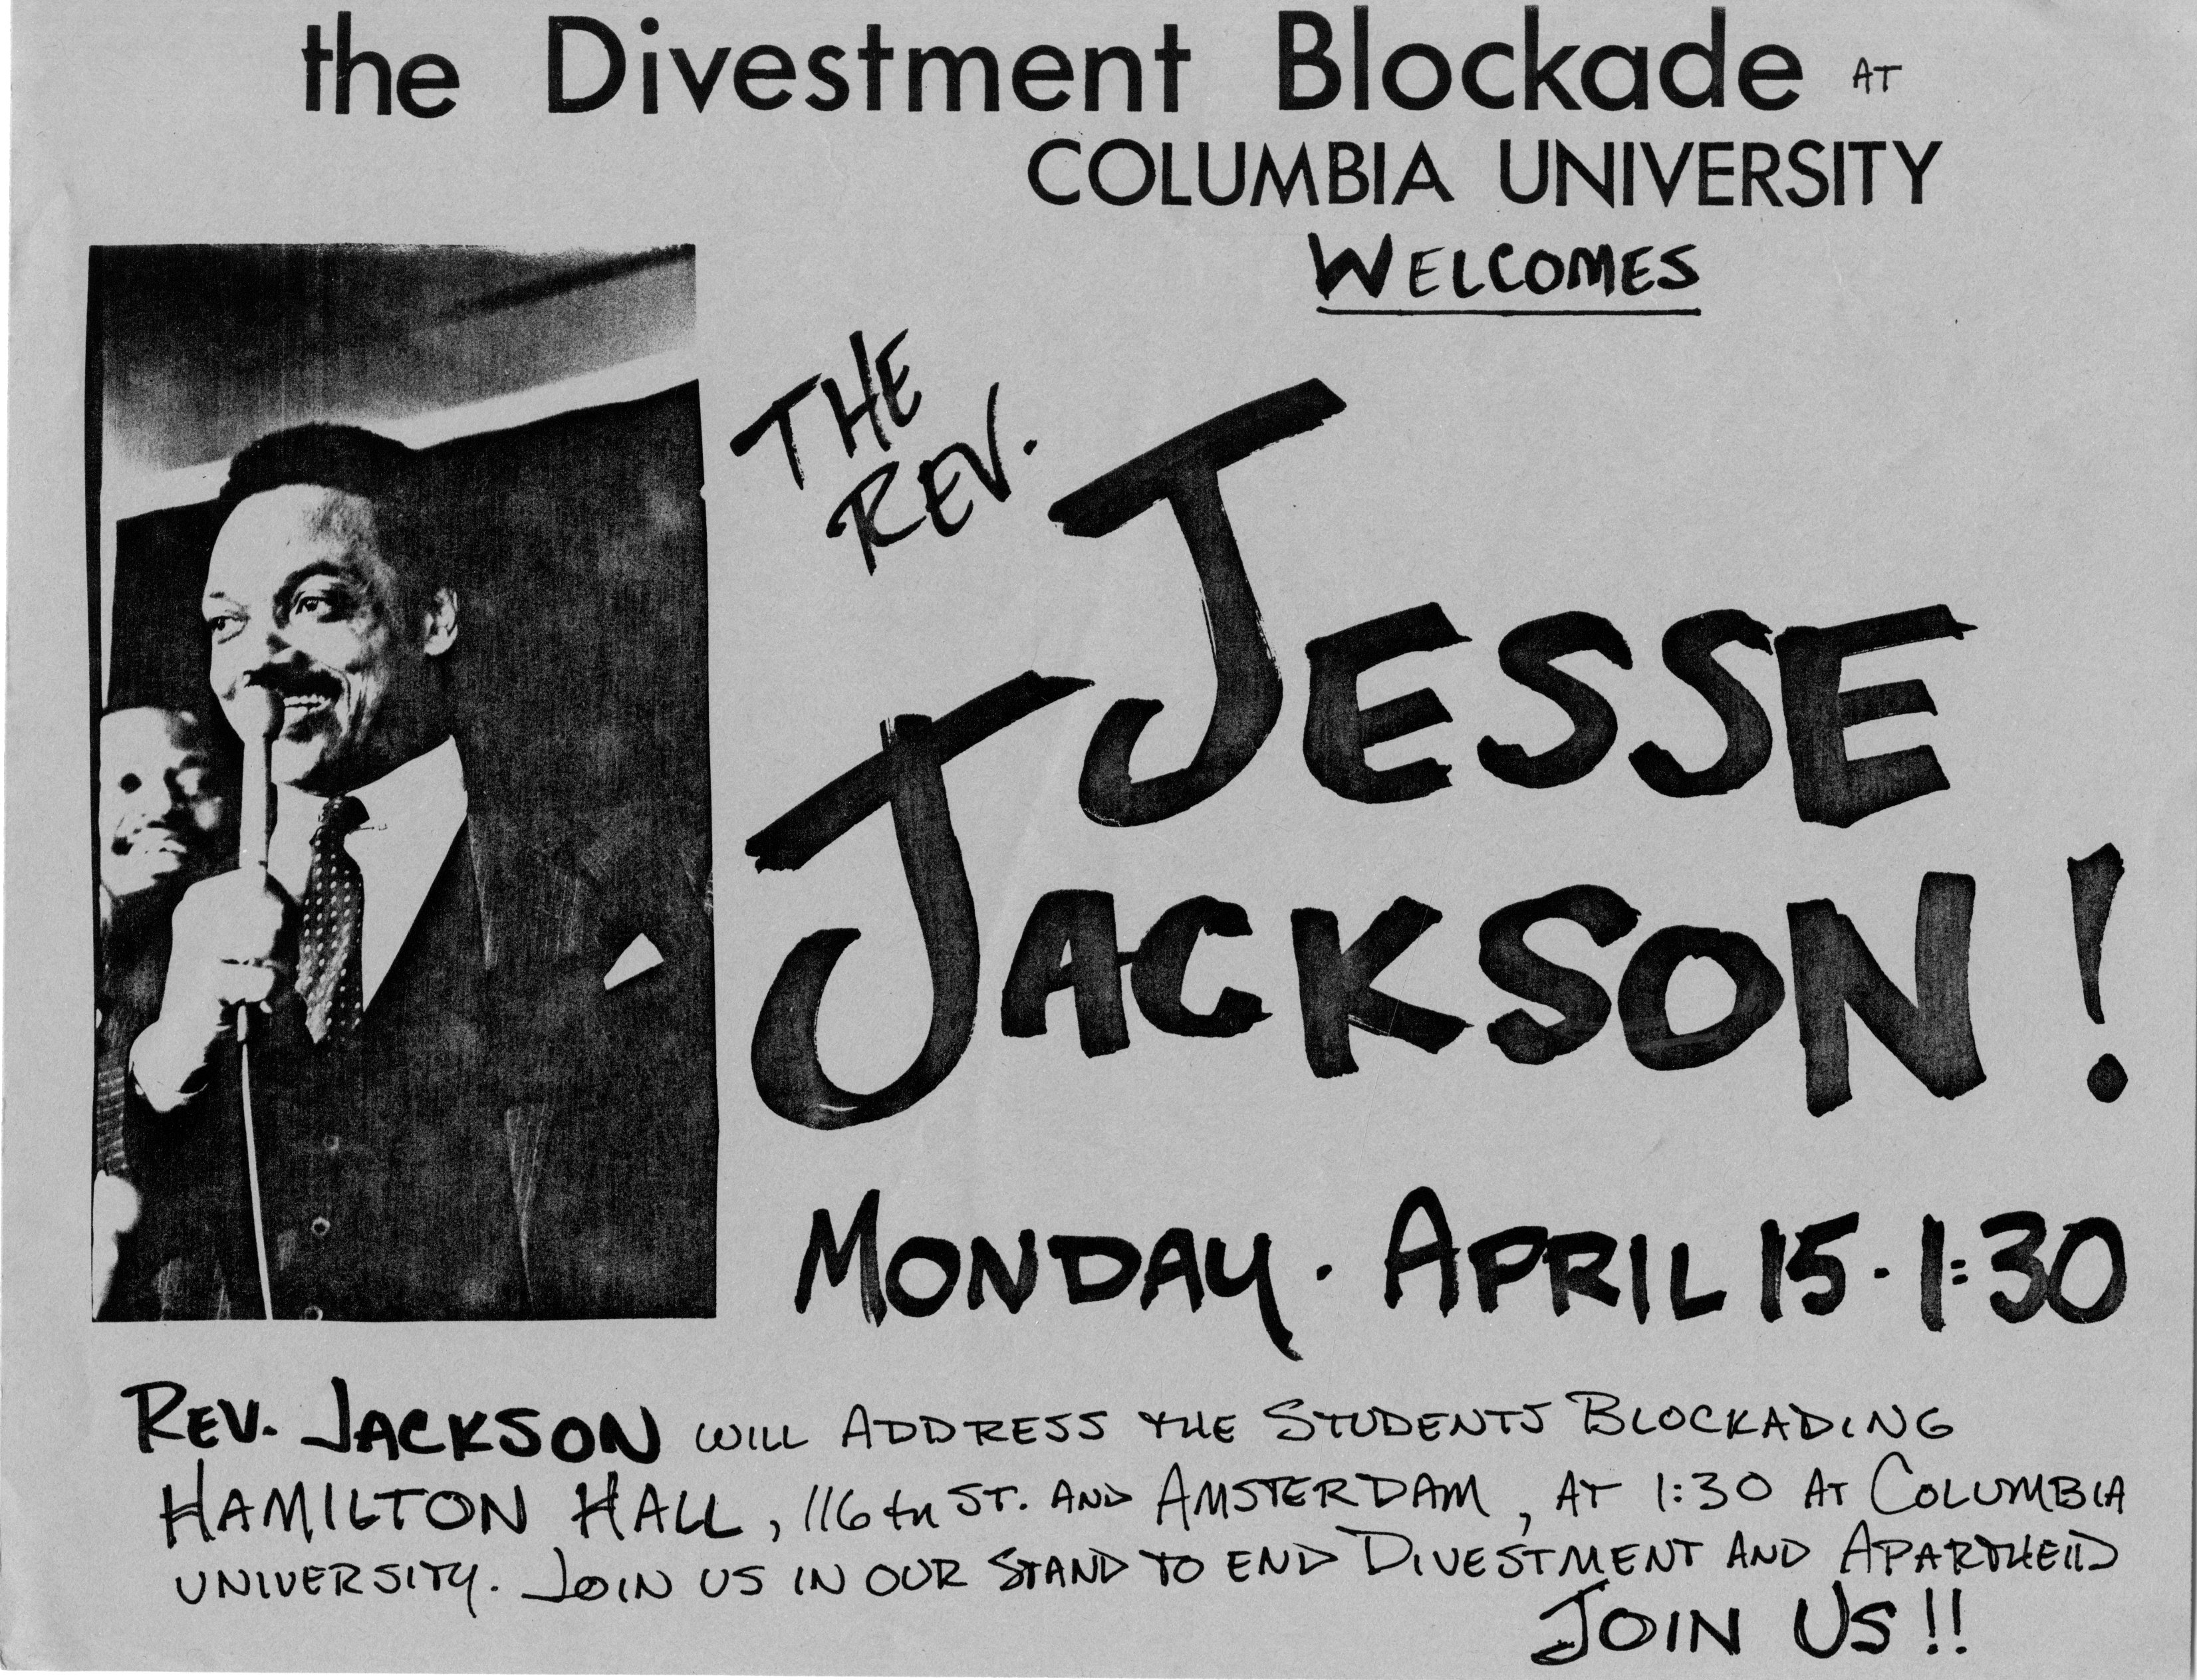 the Divestment Blockade AT
COLUMBIA UNIVERSITY
WELCOMES
THE
REV.
JESSE
JACKSON!
MONDAY · APRIL 15 · 1:30
REV. JACKSON WILL ADDRESS THE STUDENTS BLOCKADING
HAMILTON HALL, 116th ST. AND AMSTERDAM, AT 1:30 AT COLUMBIA
UNIVERSITY. JOIN US IN OUR STAND TO END DIVESTMENT AND APARTHEID
JOIN US!!